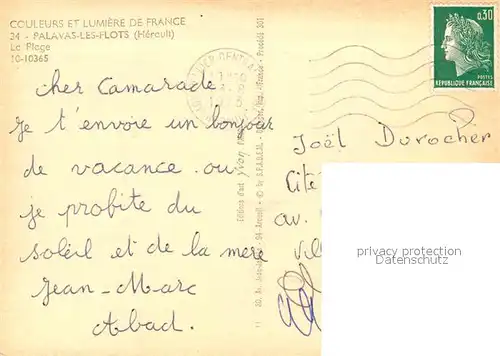 COULEURS ET LUMIÈRE DE FRANCE
34 - PALAVAS-LES-FLOTS (Hérault)
La Plage
10-10365
cher Camarade
je t'envoie un bonjour
de vacance ou
je probite du
soleil et de la mere
Jean-Marc
Abad.
Editions d'art yvon
0,30
POSTES
RÉPUBLIQUE FRANÇAISE
Joël Durocher
Cité
av.
vill
privacy protection
Datenschutz